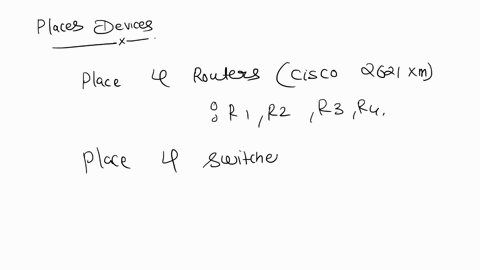 Places Devices
Place 4 Routers (Cisco 2621 xm)
: R1, R2, R3, R4.
Place 4 switche